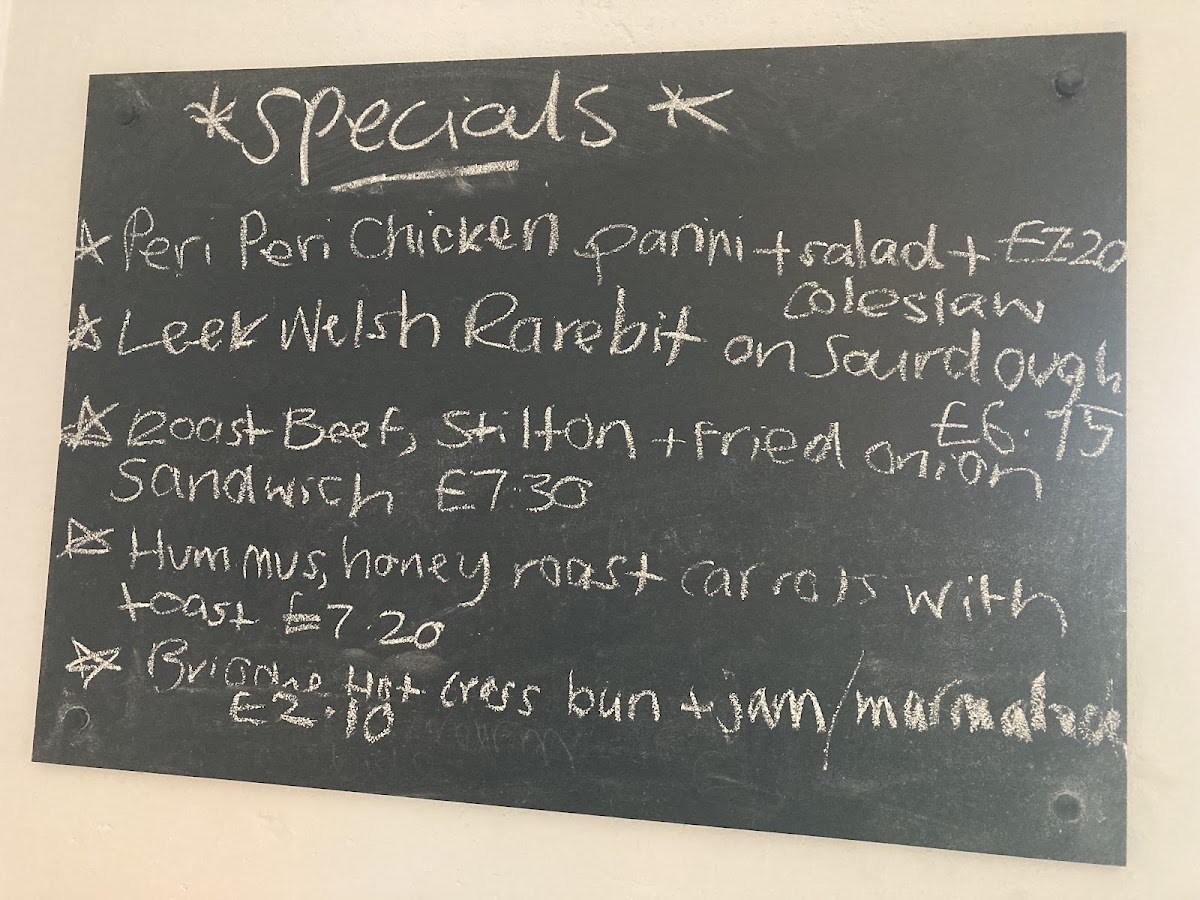 *Specials*
Peri Peri Chicken panini + salad + £7.20
coleslaw
Leek Welsh Rarebit on Sourdough
£6.95
Roast Beef, Stilton + fried onion
Sandwich £7.30
Hummus, honey roast carrots with
toast £7.20
Hot cross bun + jam/marmalade
£2.10